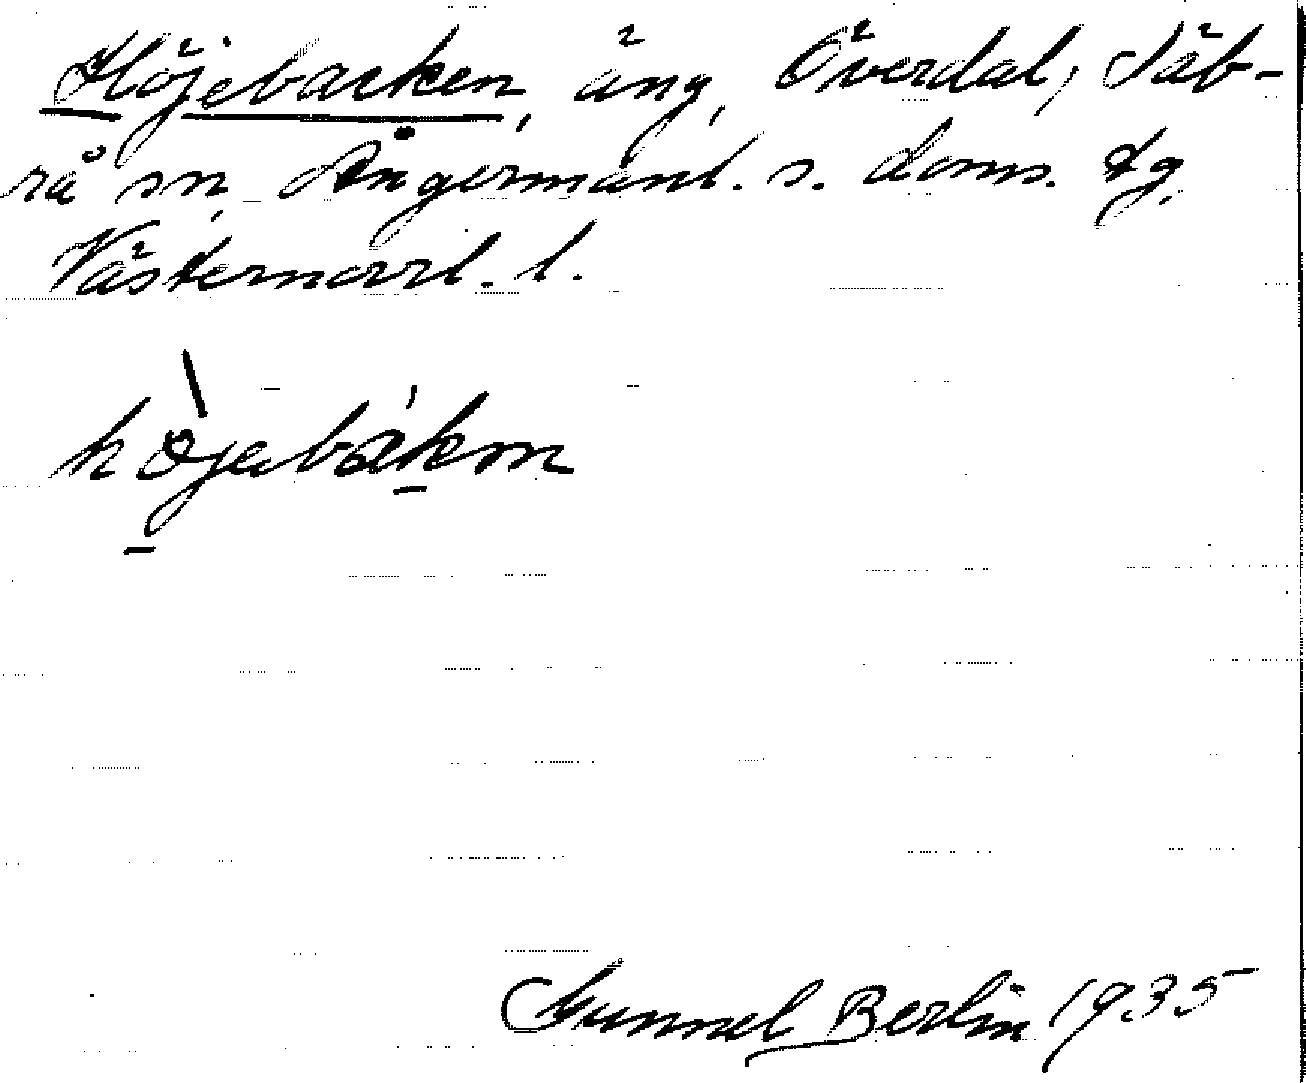 Höjebacken, äng, Överdal, Säb-
rå sn, Ångermanl. s. doms. tg.
Västernorrl. l.
höjebàkm
Gunnel Berlin 1935